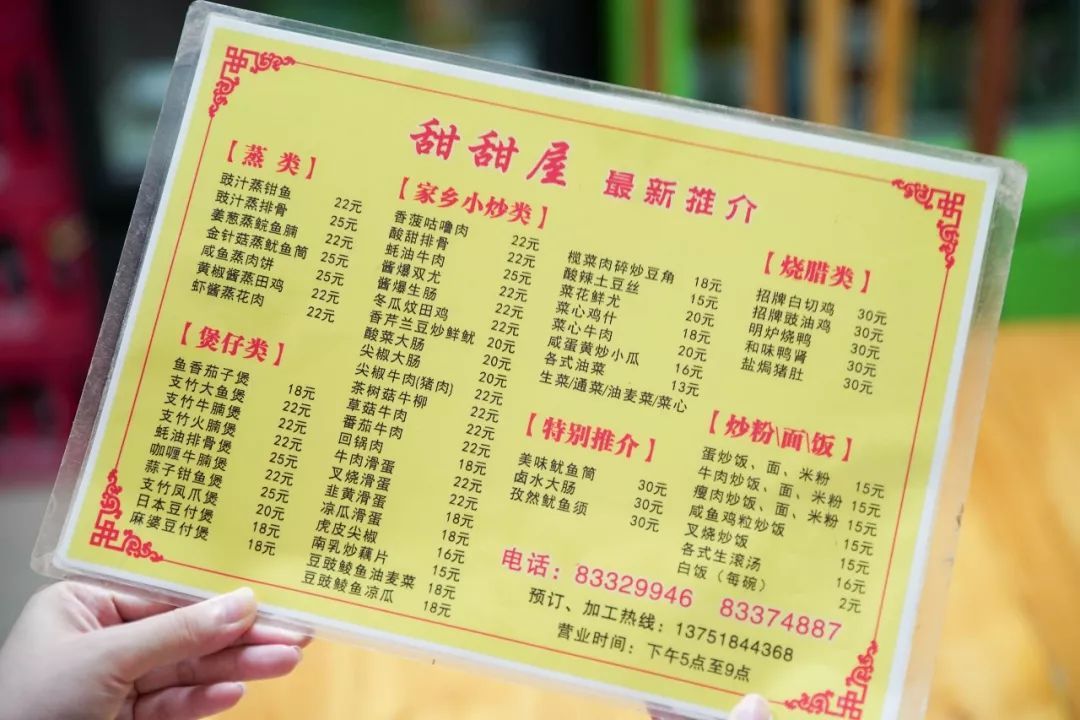 甜甜屋 最新推介
【蒸 类】
豉汁蒸钳鱼 22元
豉汁蒸排骨 25元
姜葱蒸鲩鱼腩 22元
金针菇蒸鱿鱼筒 25元
咸鱼蒸肉饼 25元
黄椒酱蒸田鸡 22元
虾酱蒸花肉 22元
【煲仔类】
鱼香茄子煲 18元
支竹大鱼煲 22元
支竹牛腩煲 22元
支竹火腩煲 22元
蚝油排骨煲 25元
咖喱牛腩煲 22元
蒜子钳鱼煲 25元
支竹凤爪煲 20元
日本豆付煲 18元
麻婆豆付煲 18元
【家乡小炒类】
香菠咕噜肉 22元
酸甜排骨 22元
蚝油牛肉 25元
酱爆双尤 22元
酱爆生肠 22元
冬瓜炆田鸡 22元
香芹兰豆炒鲜鱿 20元
酸菜大肠 20元
尖椒大肠 20元
尖椒牛肉(猪肉) 22元
茶树菇牛柳 22元
草菇牛肉 22元
番茄牛肉 18元
回锅肉 22元
牛肉滑蛋 22元
叉烧滑蛋 18元
韭黄滑蛋 18元
凉瓜滑蛋 16元
虎皮尖椒 15元
南乳炒藕片 18元
豆豉鲮鱼油麦菜 18元
豆豉鲮鱼凉瓜
榄菜肉碎炒豆角 18元
酸辣土豆丝 15元
菜花鲜尤 20元
菜心鸡什 18元
菜心牛肉 20元
咸蛋黄炒小瓜 16元
各式油菜 13元
生菜/通菜/油麦菜/菜心
【特别推介】
美味鱿鱼筒 30元
卤水大肠 30元
孜然鱿鱼须 30元
【烧腊类】
招牌白切鸡 30元
招牌豉油鸡 30元
明炉烧鸭 30元
和味鸭肾 30元
盐焗猪肚 30元
【炒粉\面\饭】
蛋炒饭、面、米粉 15元
牛肉炒饭、面、米粉 15元
瘦肉炒饭、面、米粉 15元
咸鱼鸡粒炒饭 15元
叉烧炒饭 15元
各式生滚汤 16元
白饭（每碗） 2元
电话：83329946 83374887
预订、加工热线：13751844368
营业时间：下午5点至9点